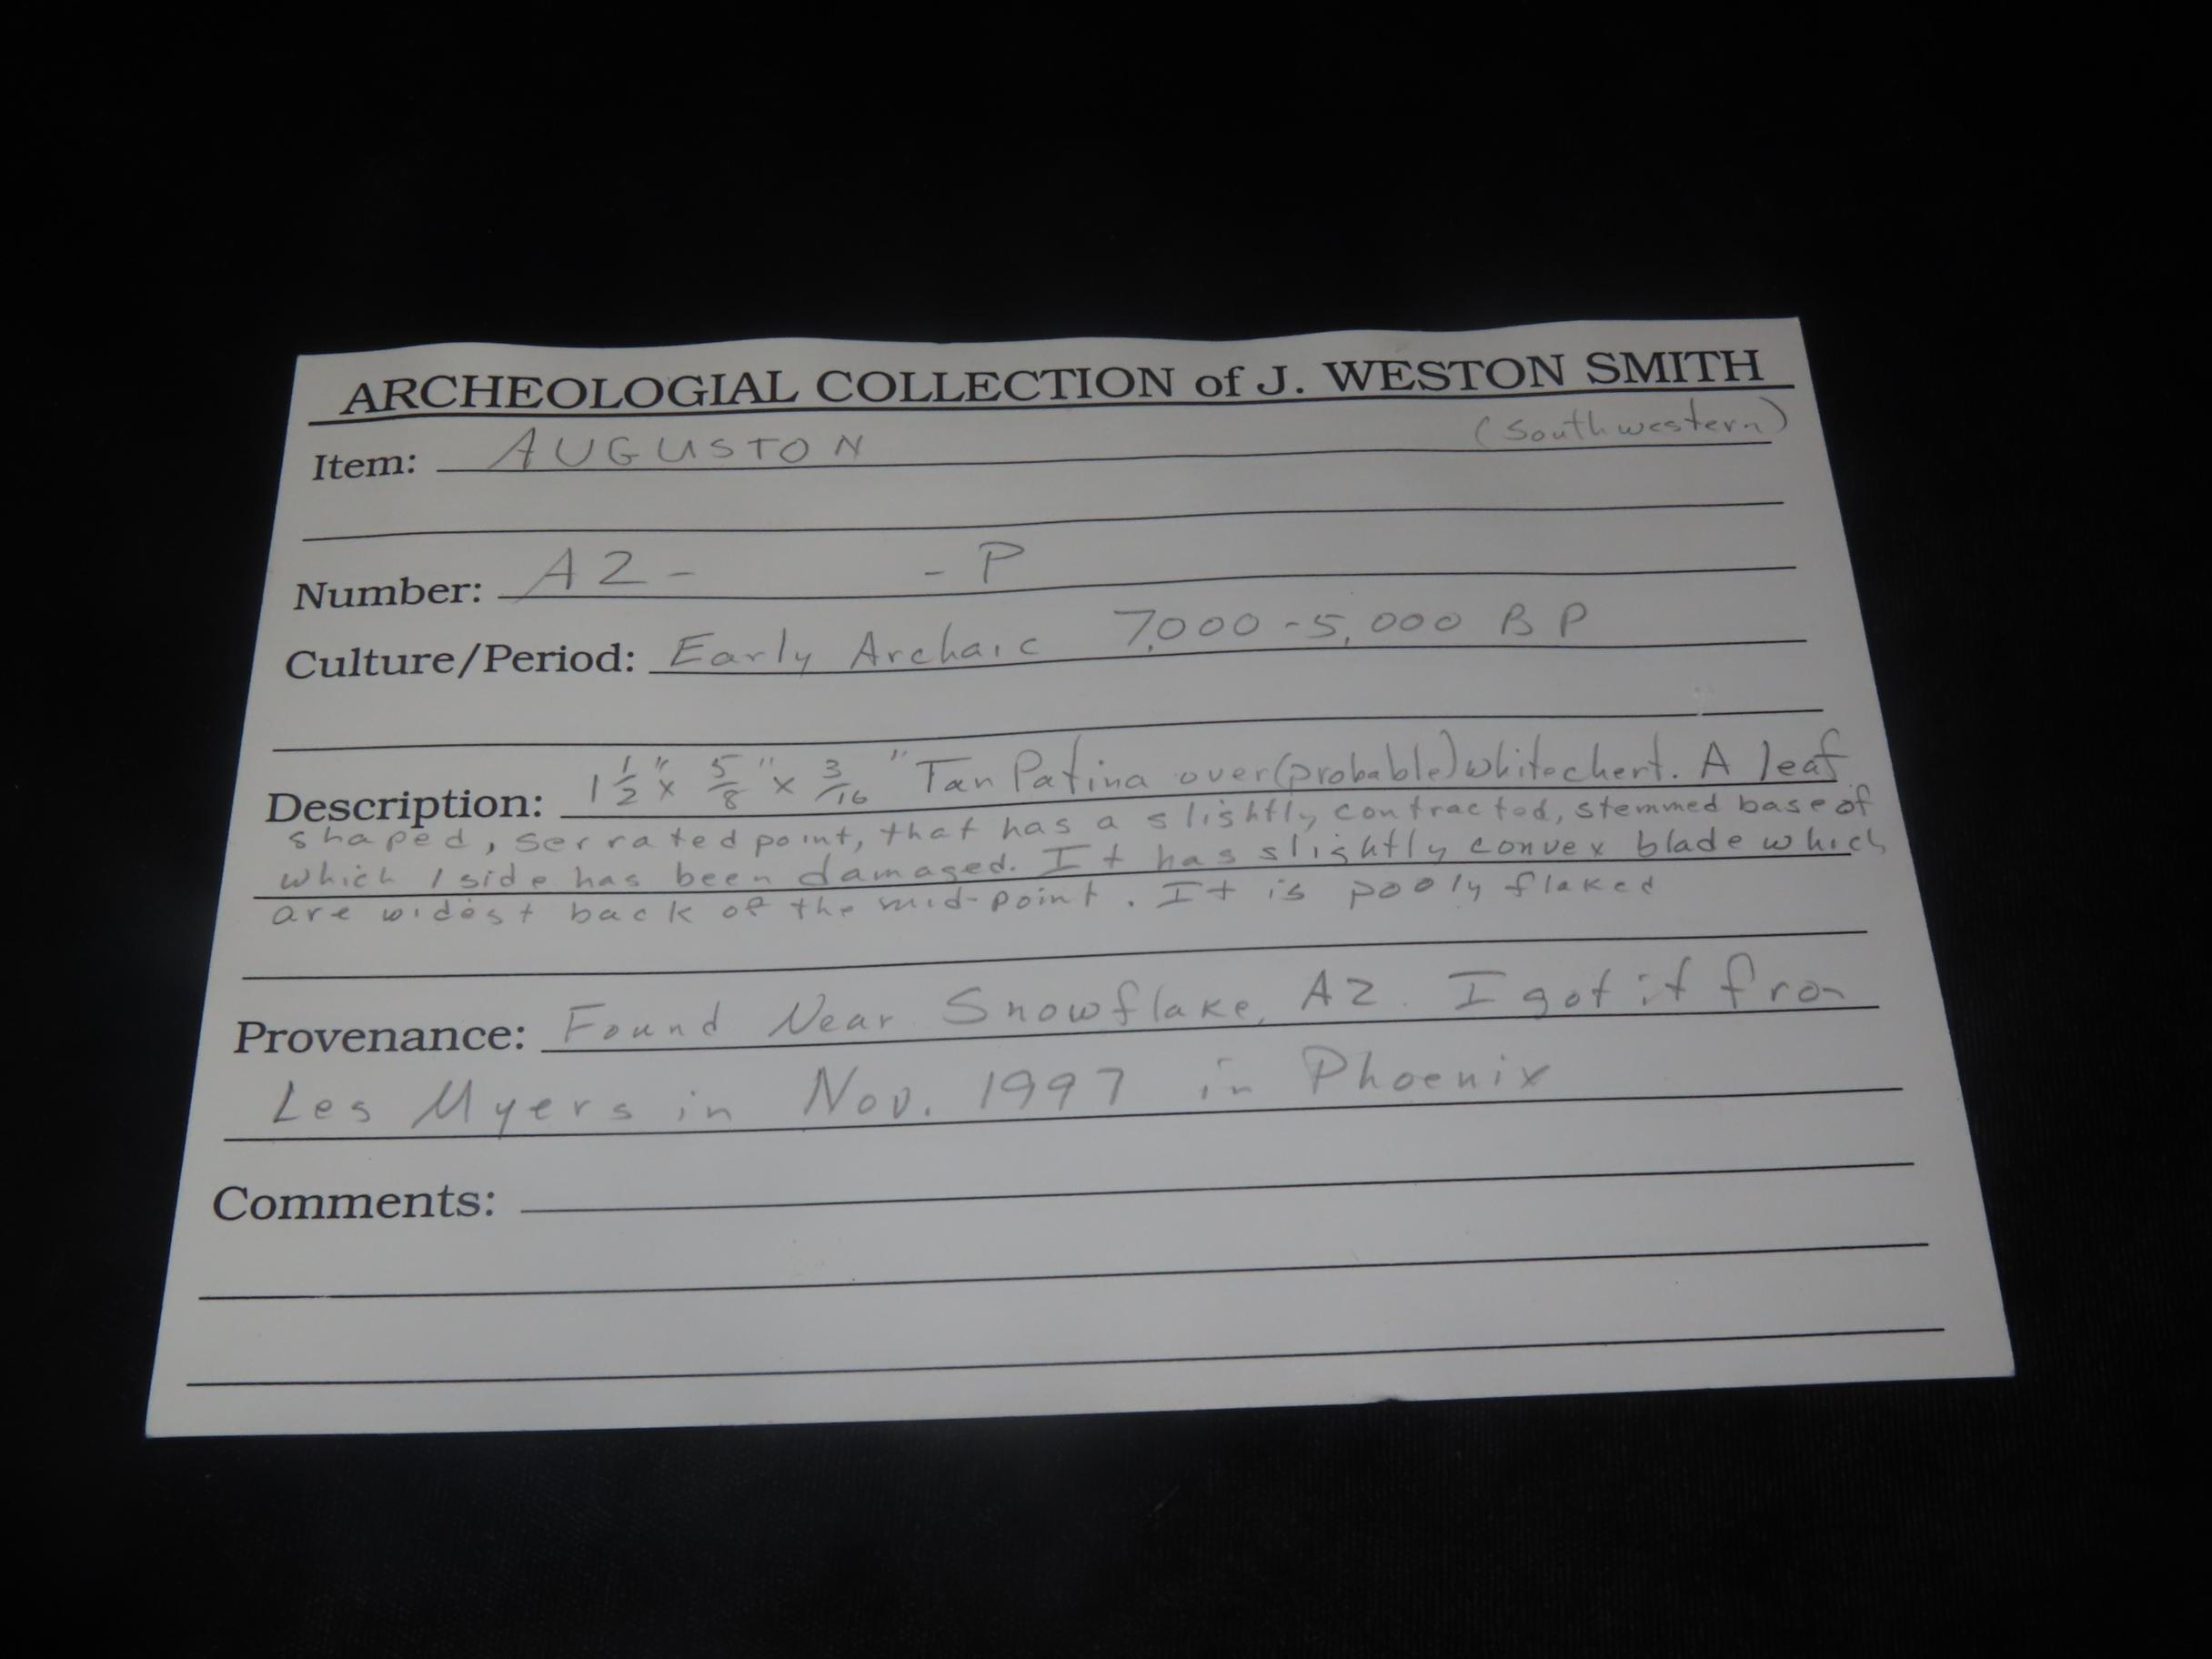 ARCHEOLOGIAL COLLECTION of J. WESTON SMITH
Item: AUGUSTON (Southwestern)
Number: AZ- -P
Culture/Period: Early Archaic 7,000-5,000 BP
Description: 1 1/2" x 5/8" x 3/16" Tan Patina over (probable) white chert. A leaf
shaped, serrated point, that has a slightly contracted, stemmed base of
which 1 side has been damaged. It has slightly convex blade which
are widest back of the mid-point. It is pooly flaked
Provenance: Found Near Snowflake, AZ. I got it from
Les Myers in Nov. 1997 in Phoenix
Comments: